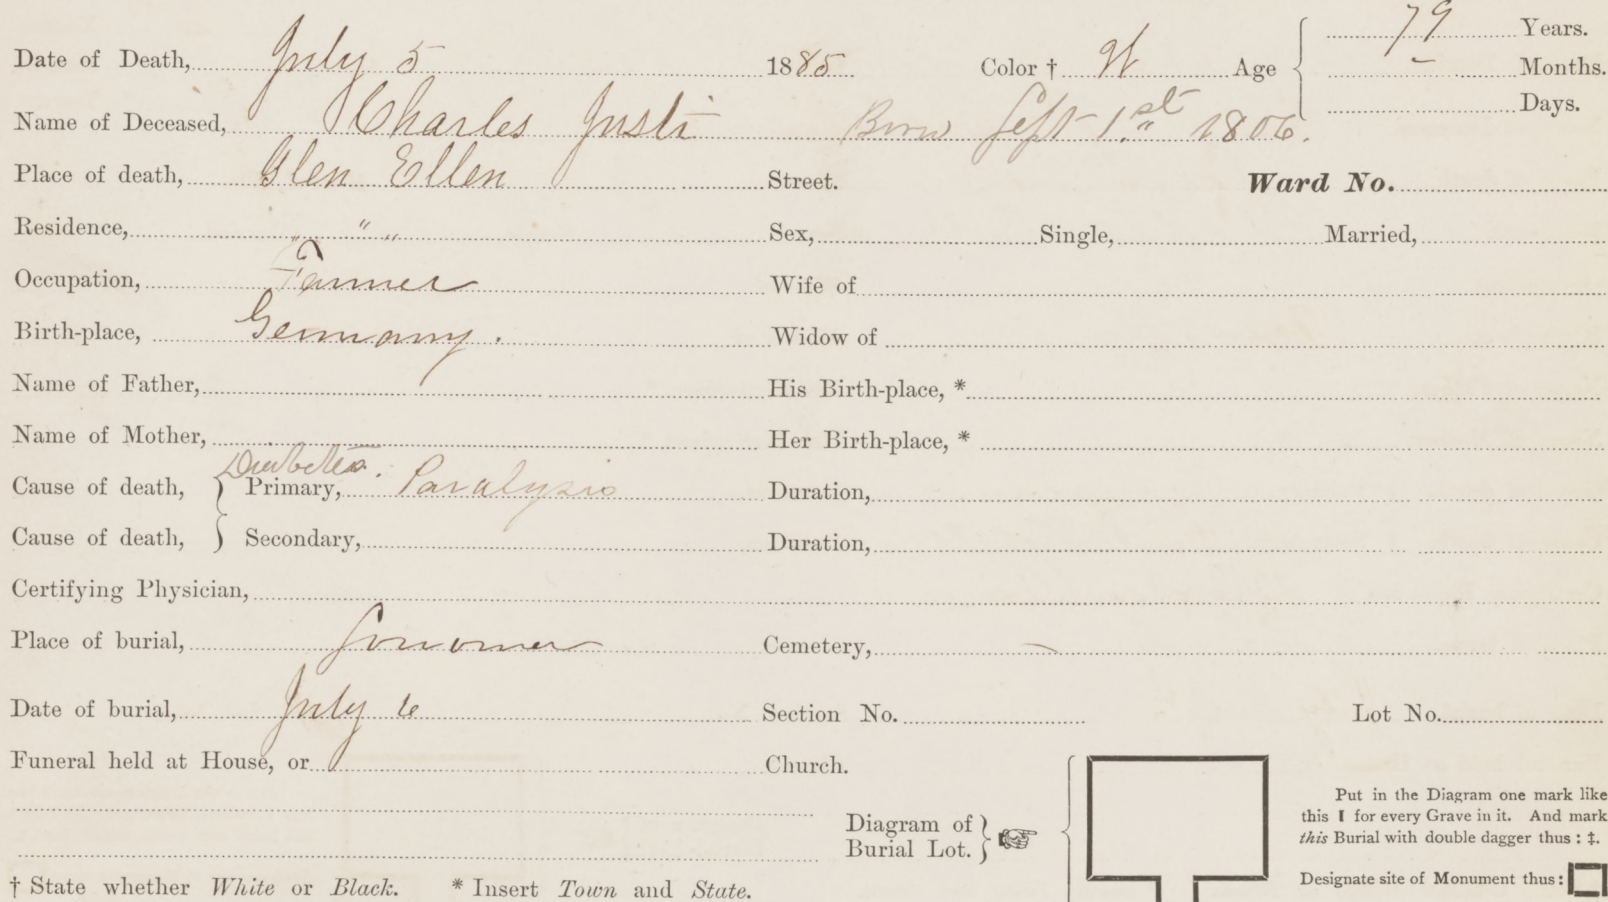 Date of Death, July 5 1885 Color † W Age 79 Years.
- Months.
Days.
Name of Deceased, Charles Justi Born Sept 1.st 1806.
Place of death, Glen Ellen Street. Ward No.
Residence, " " " Sex, Single, Married,
Occupation, Farmer Wife of
Birth-place, Germany. Widow of
Name of Father, His Birth-place, *
Name of Mother, Her Birth-place, *
Diabetes.
Cause of death, Primary, Paralysis Duration,
Cause of death, Secondary, Duration,
Certifying Physician,
Place of burial, Sonoma Cemetery, —
Date of burial, July 6 Section No. Lot No.
Funeral held at House, or Church.
Diagram of
Burial Lot.
Put in the Diagram one mark like
this I for every Grave in it. And mark
this Burial with double dagger thus : ‡.
Designate site of Monument thus :
† State whether White or Black. * Insert Town and State.